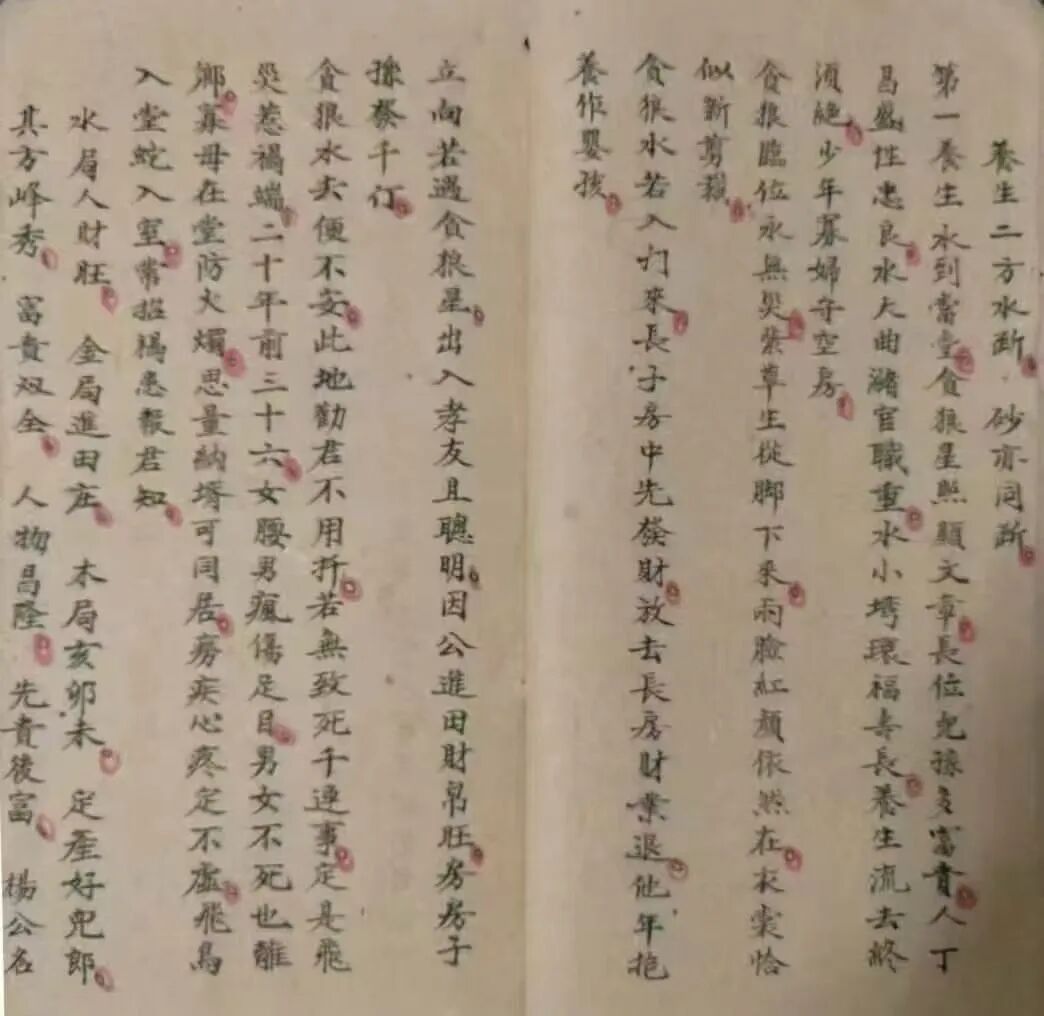 養生二方水断 砂亦同断
第一養生水到當堂貪狼星照顯文章長位兒孫多富貴人丁
昌盛性忠良水大曲潮官職重水小塆環福壽長養生流去終
須絕少年寡婦守空房
貪狼臨位永無災紫草生從脚下来兩臉紅顏依然在衣裳恰
似新剪裁
貪狼水若入打來長子房中先發財放去長房財業退他年抱
養作嬰孩
立向若遇貪狼星出入孝友且聰明因公進田財帛旺房房子
孫發千订
貪狼水去便不安此地勸君不用扦若無致死千連事定是飛
災惹禍端二十年前三十六女腰男瘋傷足目男女不死也離
鄉寡母在堂防火燭思量納壻可同居癆疾心疼定不虛飛鳥
入堂蛇入室常招禍患報君知
水局人財旺 金局進田庄 木局亥卯未 定產好兒郎
其方峰秀 富貴双全 人物昌隆 先貴後富 楊公名